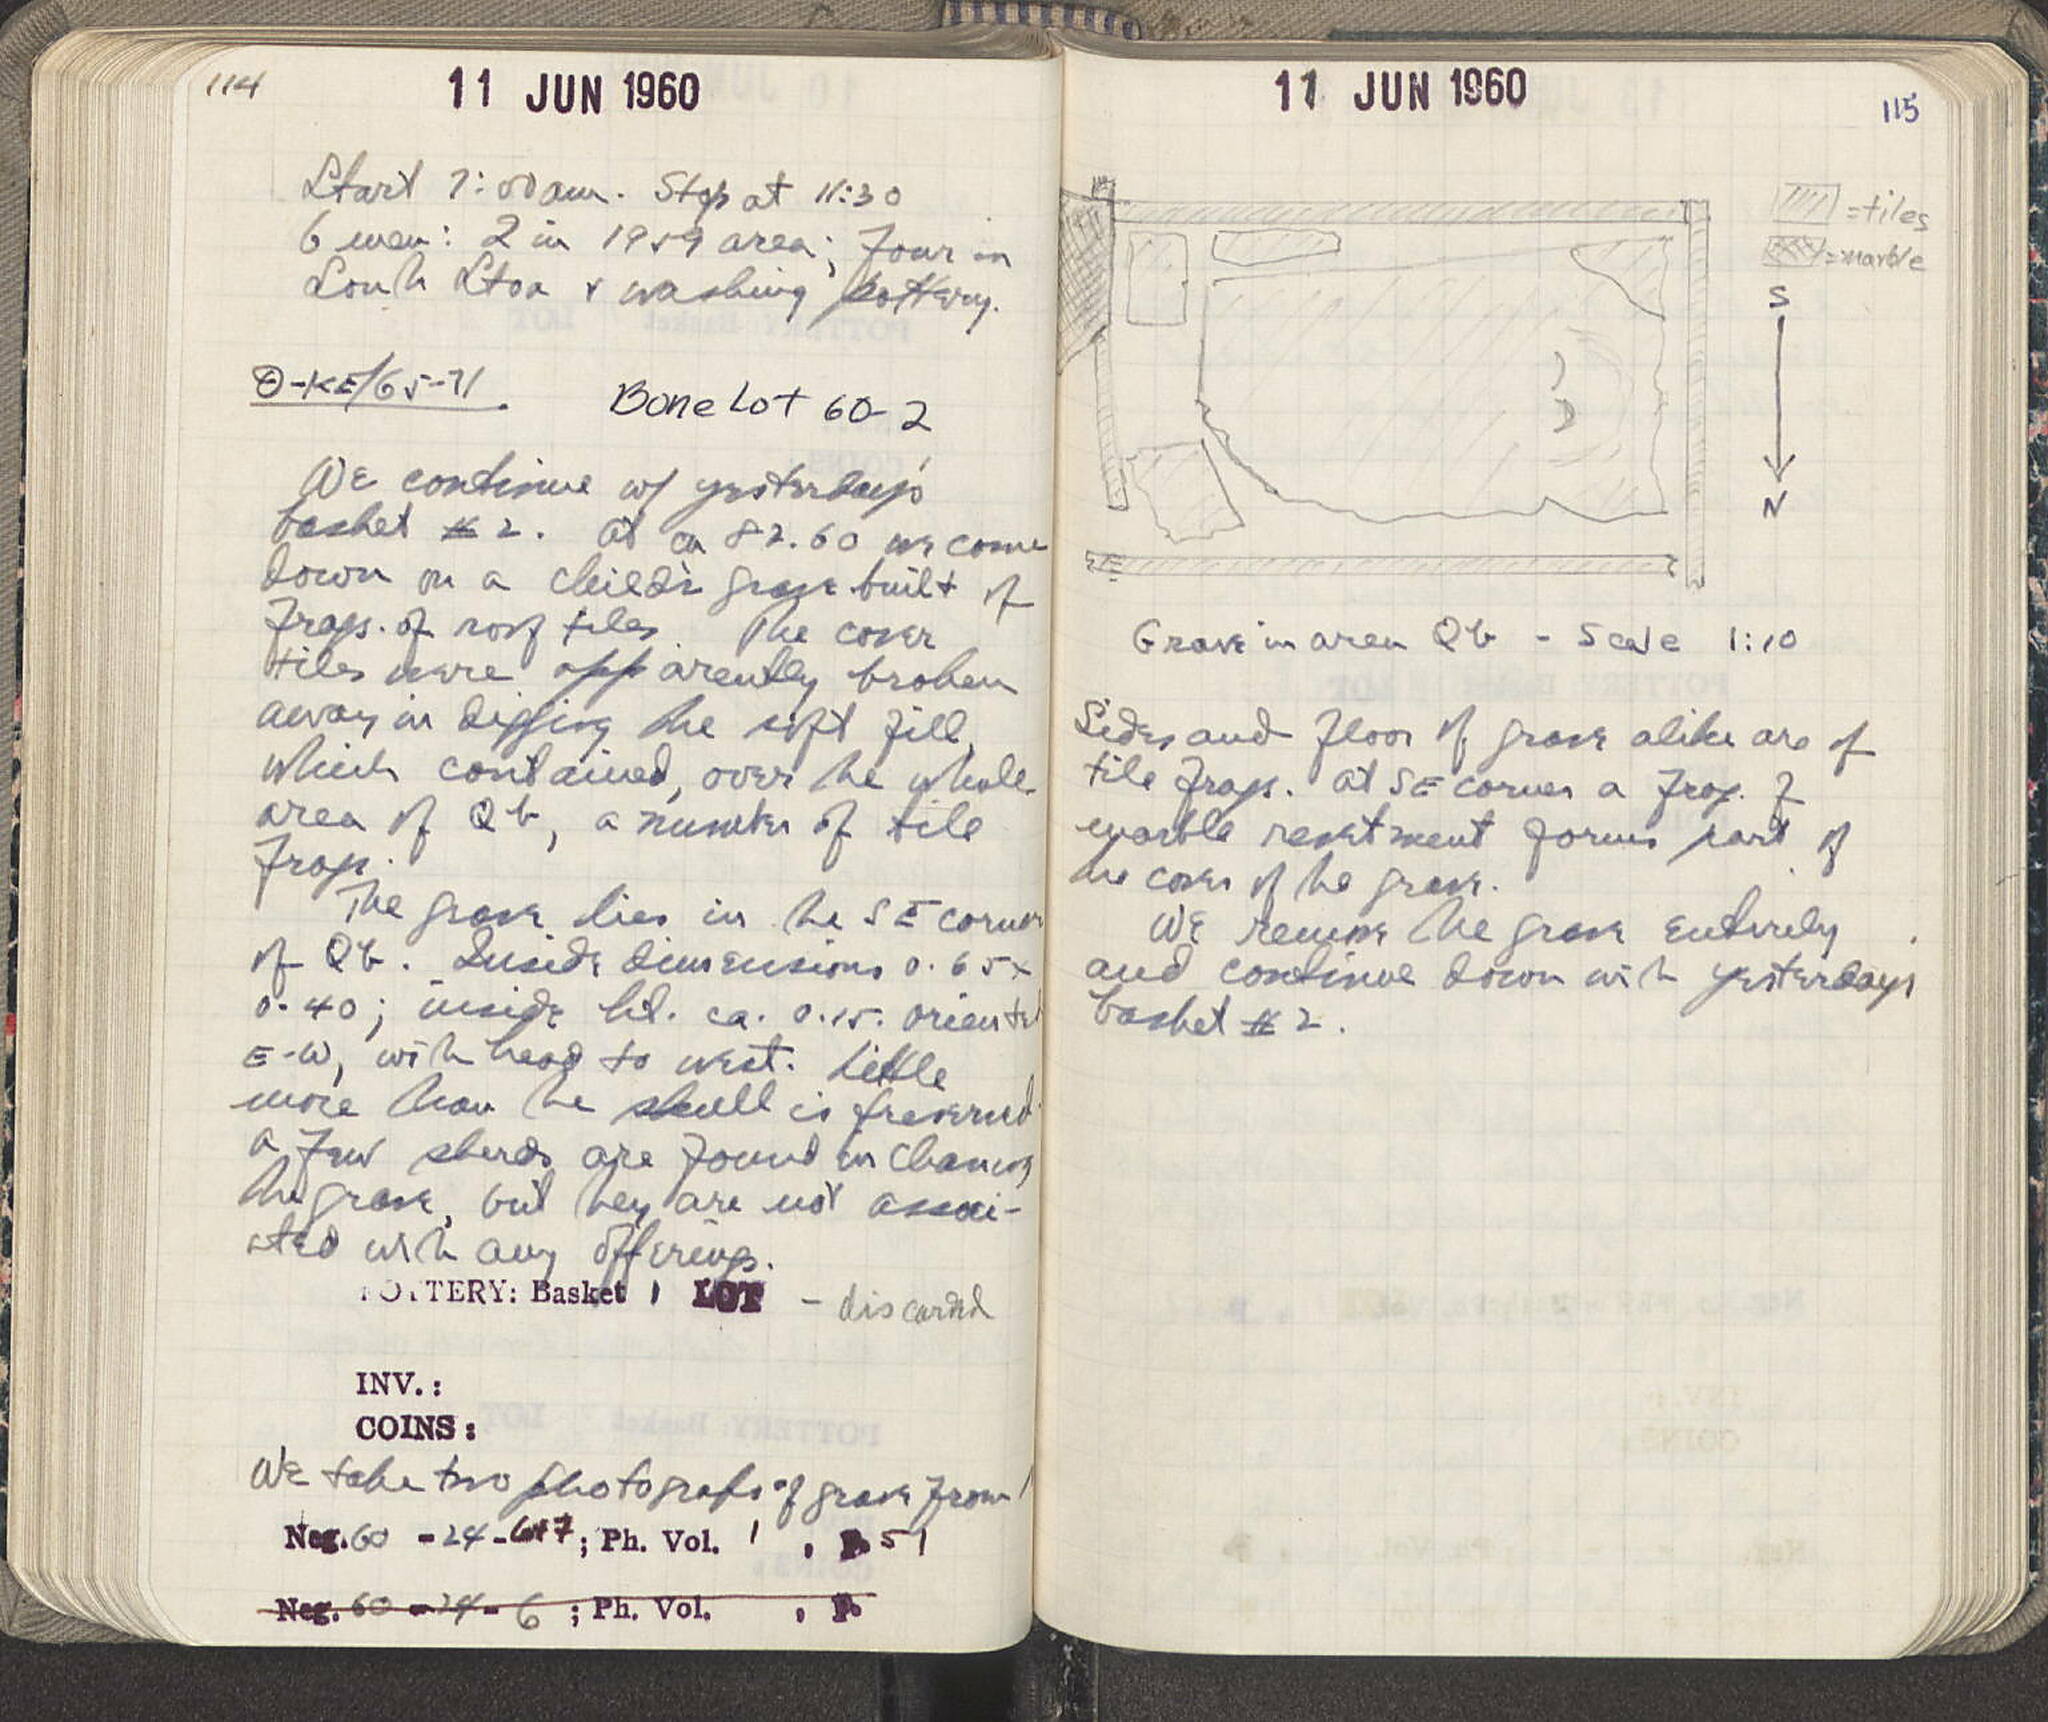 114
11 JUN 1960
Start 7:00 am. Stop at 11:30
6 men: 2 in 1959 area; four in
South Stoa & washing pottery.
O-KE/65-71. Bone Lot 60-2
We continue w/ yesterday's
basket #2. At ca 82.60 we come
down on a child's grave built of
frags. of roof tiles. The cover
tiles were apparently broken
away in digging the soft fill,
which contained, over the whole
area of Qb, a number of tile
frags.
The grave lies in the SE corner
of Qb. Inside dimensions 0.65x
0.40; inside ht. ca. 0.15. Oriented
E-W, with head to west. Little
more than the skull is preserved.
A few sherds are found in cleaning
the grave, but they are not associ-
ated with any offerings.
POTTERY: Basket 1 LOT - discarded
INV.:
COINS:
We take two photografs of grave from
Neg. 60 - 24 - 6+7; Ph. Vol. 1, P. 51
Neg. 60 - 24 - 6; Ph. Vol. , P.
11 JUN 1960
115
= tiles
= marble
S
N
Grave in area Qb - Scale 1:10
Sides and floor of grave alike are of
tile frags. At SE corner a frag. of
marble revetment forms part of
the cover of the grave.
We remove the grave entirely
and continue down with yesterdays
basket #2.